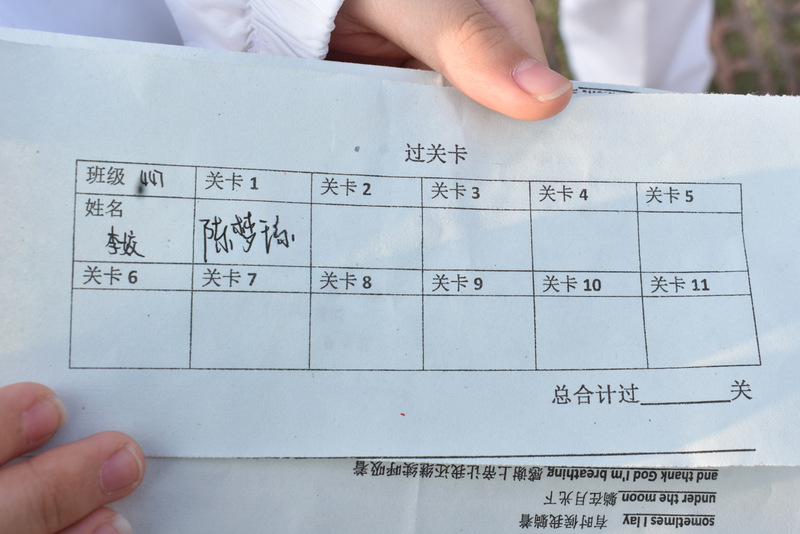 过关卡
班级 417 关卡1 关卡2 关卡3 关卡4 关卡5
姓名
李姣 陈梦瑶
关卡6 关卡7 关卡8 关卡9 关卡10 关卡11
总合计过________关
sometimes I lay 有时候我躺着
under the moon 躺在月光下
and thank God I'm breathing 感谢上帝让我还继续呼吸着